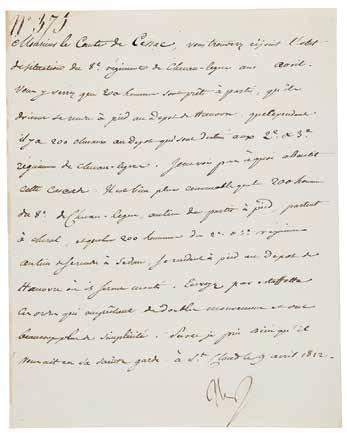 N° 375
Monsieur le Comte de Cessac, vous trouverez ci joint l'état
de situation du 8e régiment de Chevau-legers au avril.
Vous y verrez que 200 hommes sont prêts à partir, qu'ils
doivent se rendre à pied au dépôt de Hanovre, que cependant
il y a 200 chevaux au dépôt qui sont destinés aux 2e & 3e
régimens de chevau-legers. Je ne vois pas à quoi aboutit
cette cascade. Il est bien plus convenable que les 200 hommes
du 8e de Chevau-Legers, au lieu de partir à pied, partent
à cheval, et que les 200 hommes du 2e & 3e régimens
au lieu de se rendre à Sedan, se rendent à pied au dépôt de
Hanovre où ils seront montés. Envoyez par estaffette
ces ordres qui empêchent de doubles mouvemens et sont
beaucoup plus de simplicité. Sur ce je prie Dieu qu'il
vous ait en sa sainte garde. à St Cloud le 9 avril 1812